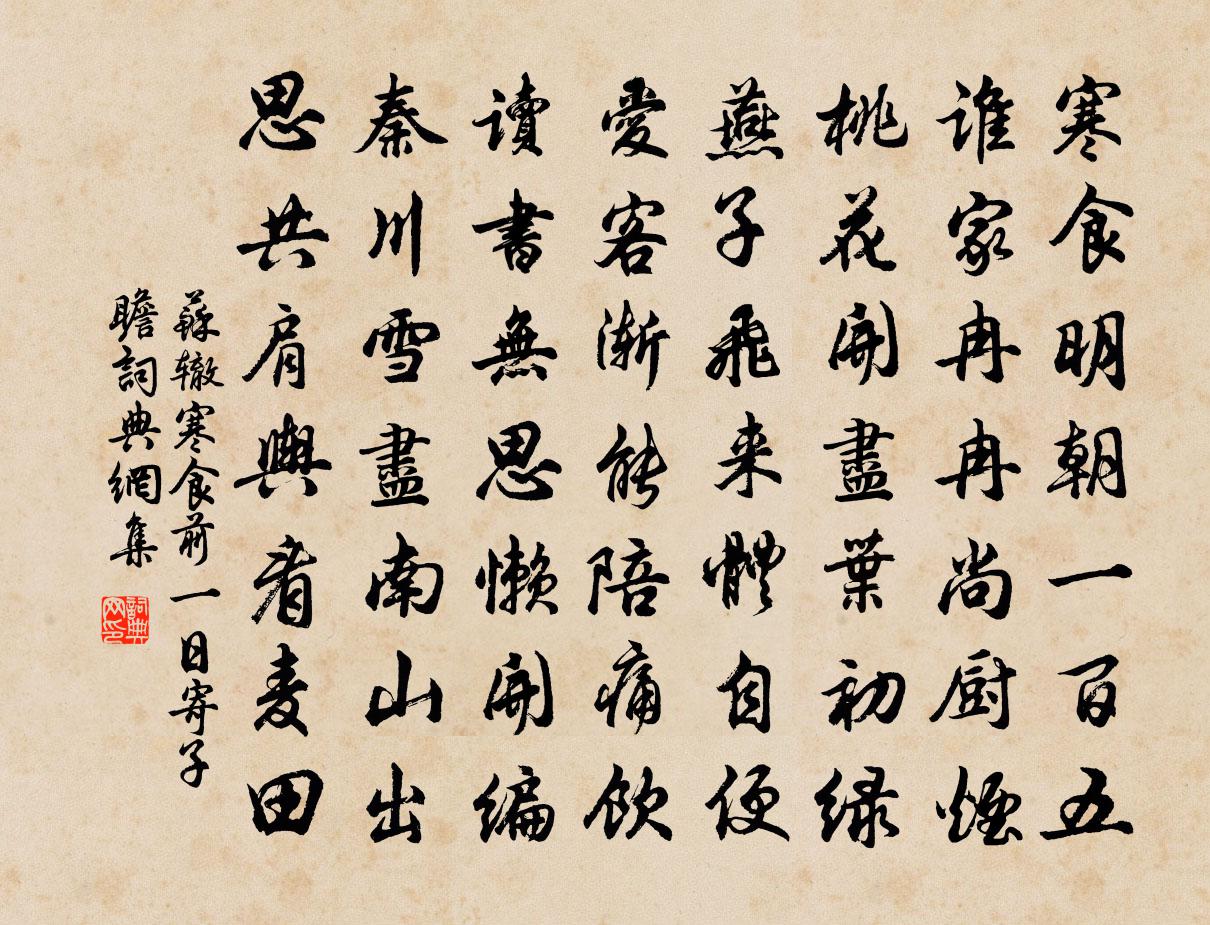 寒食明朝一百五
谁家冉冉尚厨煙
桃花開盡葉初緑
燕子飛来體自便
愛客漸能陪痛飲
读書無思懶開编
秦川雪盡南山出
思共肩輿看麦田
蘇辙寒食前一日寄子
瞻詞典網集
詞典
网印